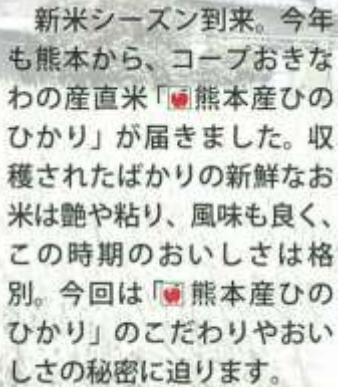 新米シーズン到来。今年
も熊本から、コープおきな
わの産直米「熊本産ひの
ひかり」が届きました。収
穫されたばかりの新鮮なお
米は艶や粘り、風味も良く、
この時期のおいしさは格
別。今回は「熊本産ひの
ひかり」のこだわりやおい
しさの秘密に迫ります。